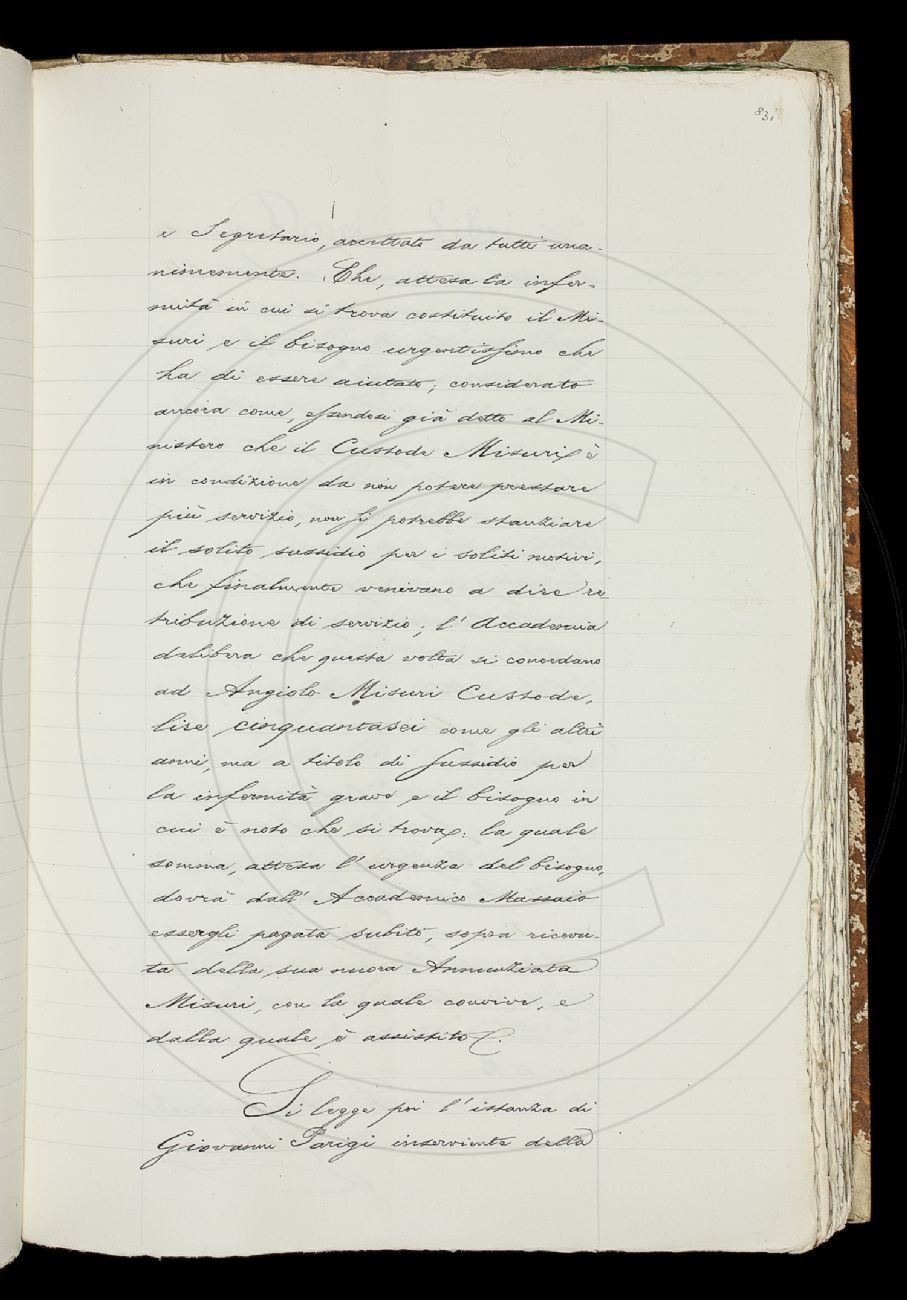 831
e Segretario, accettate da tutti una-
nimemente. Che, attesa la infer-
mità in cui si trova costituito il Mi-
suri e il bisogno urgentissimo che
ha di essere aiutato; considerato
ancora come, essendosi già detto al Mi-
nistero che il Custode Misuri è
in condizione da non potere prestare
più servizio, non si potrebbe stanziare
il solito sussidio per i soliti motivi,
che finalmente venivano a dire re-
tribuzione di servizio; l'Accademia
delibera che questa volta si concedano
ad Angiolo Misuri Custode,
lire cinquantasei come gli altri
anni, ma a titolo di sussidio per
la infermità grave e il bisogno in
cui è noto che si trova: la quale
somma, attesa l'urgenza del bisogno,
dovrà dall'Accademico Massaio
essergli pagata subito, sopra ricevu-
ta della sua nuora Annunziata
Misuri, con la quale convive, e
dalla quale è assistito.
Si legge poi l'istanza di
Giovanni Parigi inserviente della